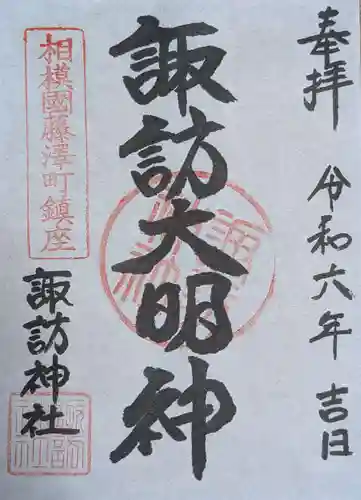 奉拝
令和六年 吉日
諏訪大明神
相模國藤澤町鎮座
諏訪神社